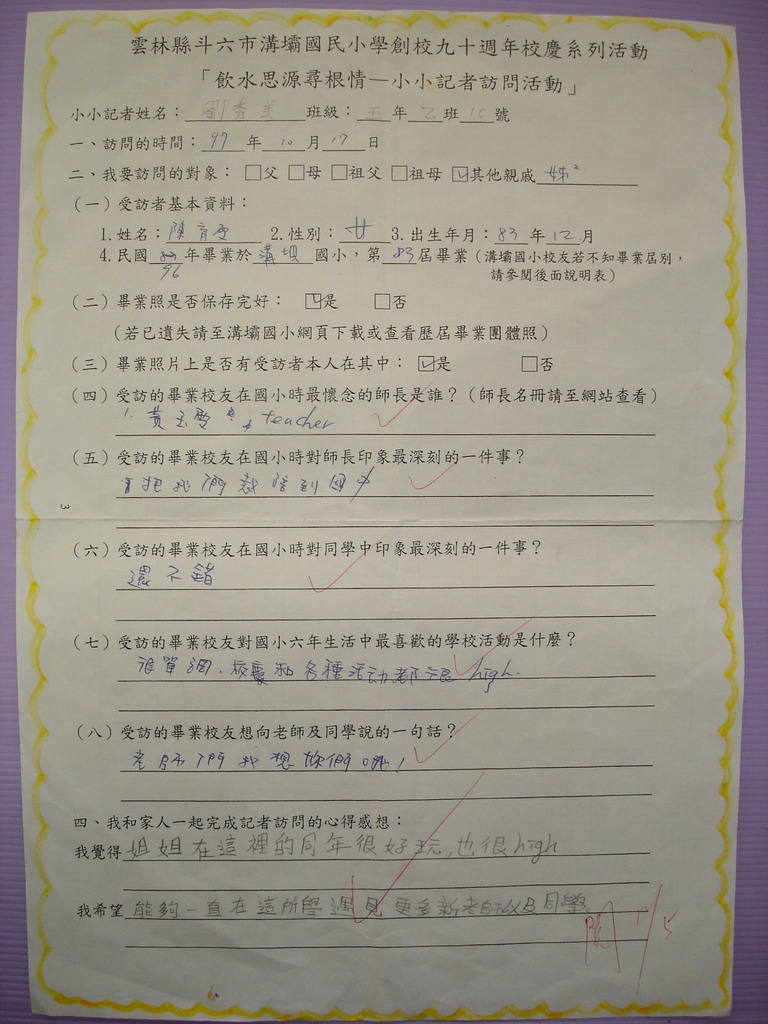 雲林縣斗六市溝壩國民小學創校九十週年校慶系列活動
「飲水思源尋根情—小小記者訪問活動」
小小記者姓名：劉秀美 班級：五年乙班 號
一、訪問的時間：97年10月17日
二、我要訪問的對象：□父 □母 □祖父 □祖母 ☑其他親戚 姊
（一）受訪者基本資料：
1.姓名：陳 2.性別：女 3.出生年月：83年12月
4.民國96年畢業於溝坝國小，第83屆畢業（溝壩國小校友若不知畢業屆別，
請參閱後面說明表）
（二）畢業照是否保存完好： ☑是 □否
（若已遺失請至溝壩國小網頁下載或查看歷屆畢業團體照）
（三）畢業照片上是否有受訪者本人在其中：☑是 □否
（四）受訪的畢業校友在國小時最懷念的師長是誰？（師長名冊請至網站查看）
黃玉雯 teacher
（五）受訪的畢業校友在國小時對師長印象最深刻的一件事？
把我們栽培到國中
3
（六）受訪的畢業校友在國小時對同學中印象最深刻的一件事？
還不錯
（七）受訪的畢業校友對國小六年生活中最喜歡的學校活動是什麼？
很單純、校慶和各種活动都很high.
（八）受訪的畢業校友想向老師及同學說的一句話？
老師們我想你們哦！
四、我和家人一起完成記者訪問的心得感想：
我覺得姐姐在這裡的同年很好玩，也很high
我希望能夠一直在這所學遇見更多新老師以及同學。
閱 1/5